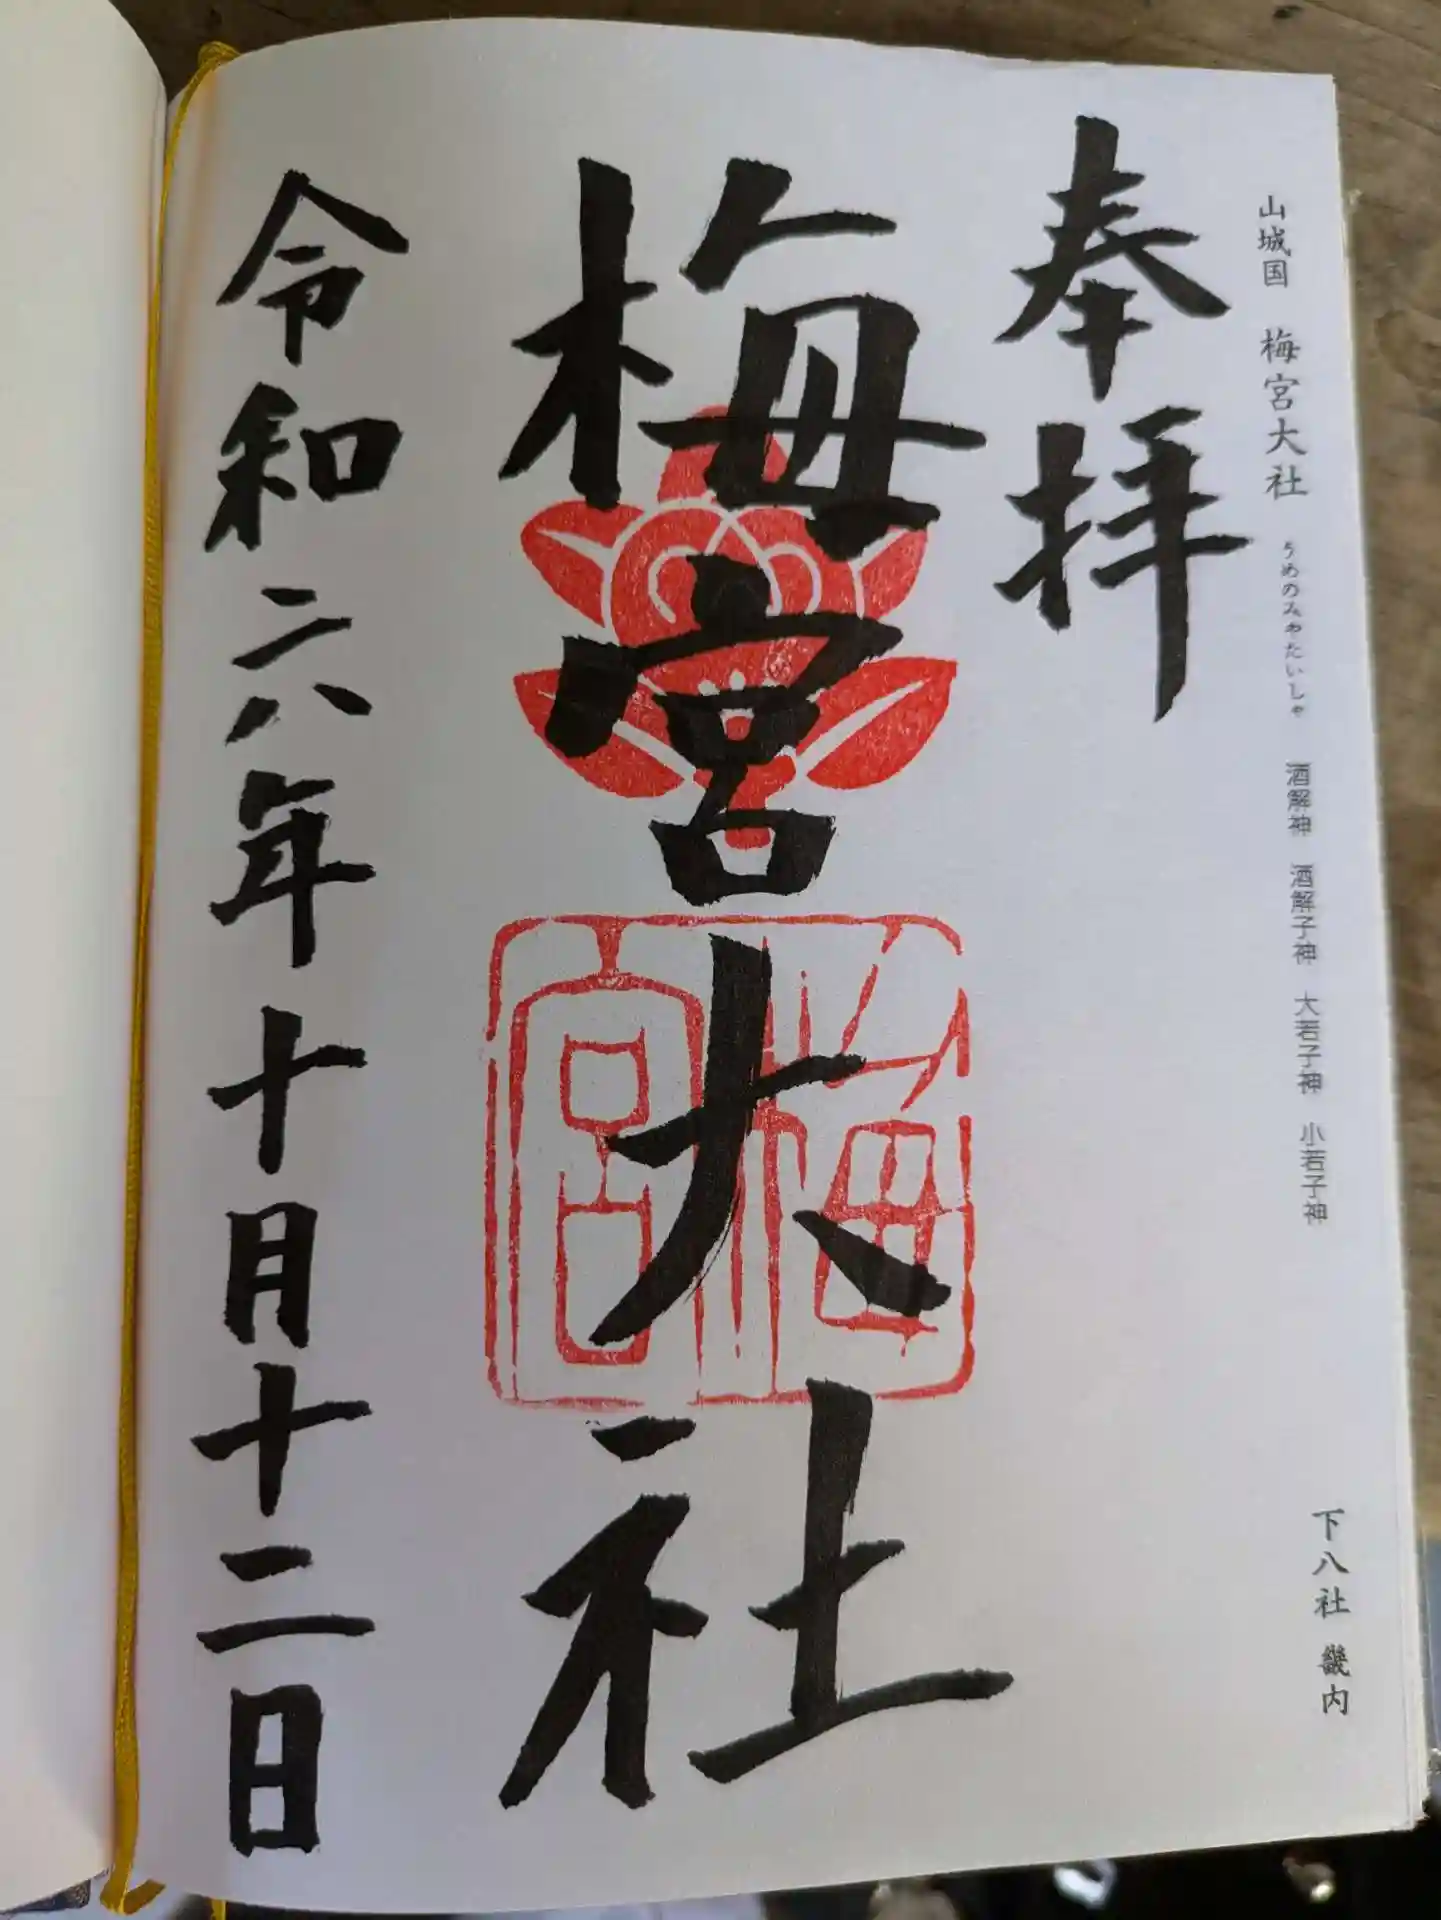 山城国 梅宮大社 うめのみやたいしゃ 酒解神 酒解子神 大若子神 小若子神
下八社 畿内
奉拝
梅宮大社
梅宮
令和六年十月十二日